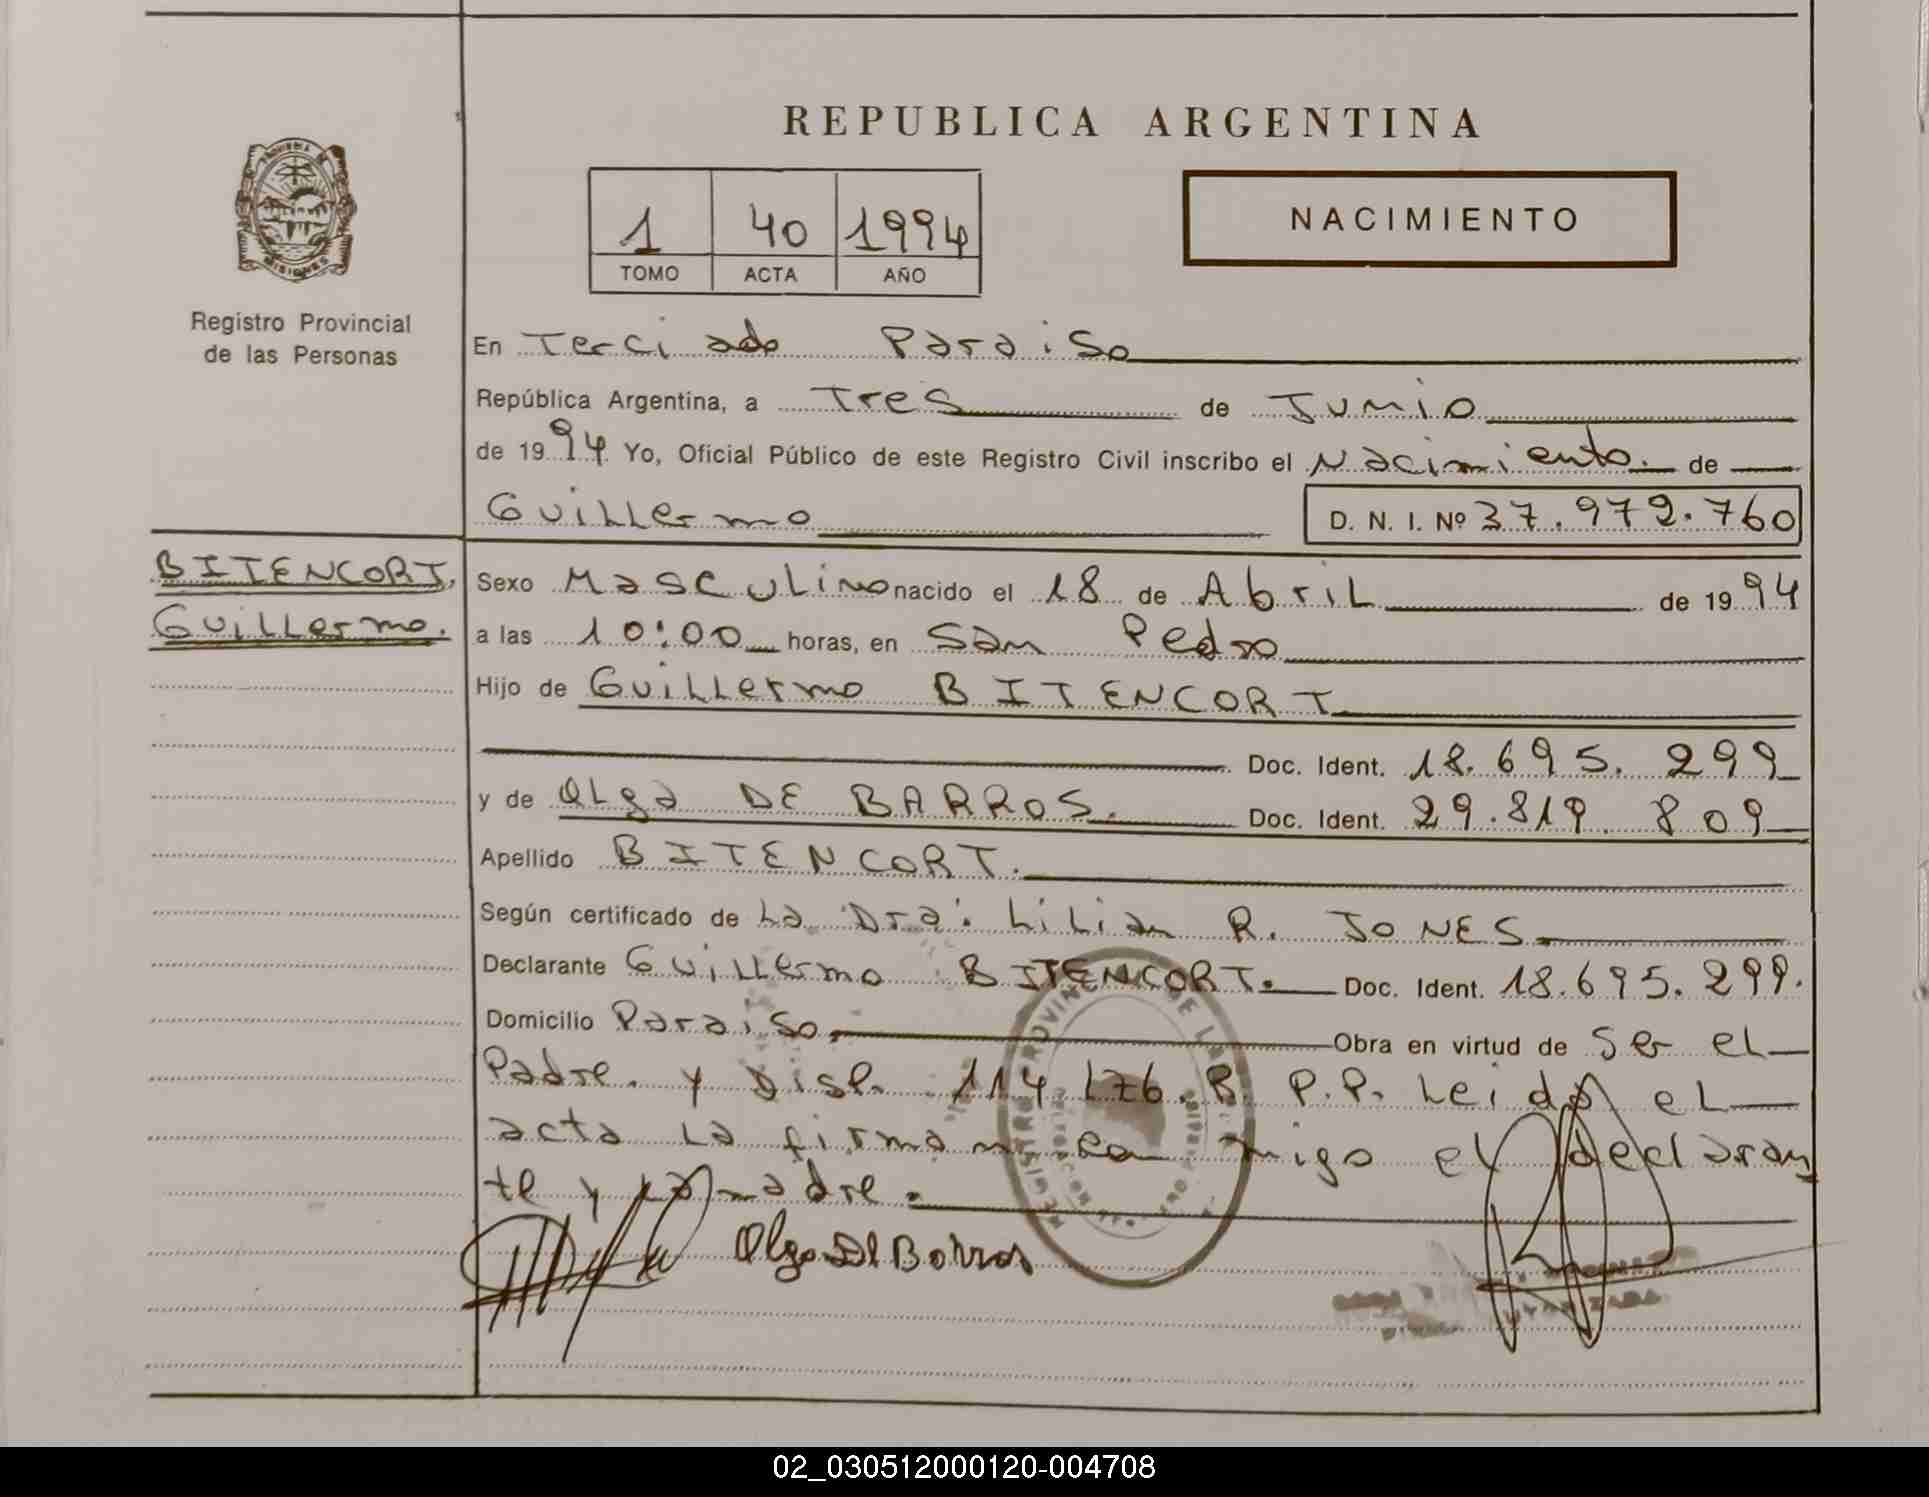 REPUBLICA ARGENTINA
MISIONES
Registro Provincial
de las Personas
1 40 1994
TOMO ACTA AÑO
NACIMIENTO
En Terciado Paraiso
República Argentina, a Tres de Junio
de 1994 Yo, Oficial Público de este Registro Civil inscribo el Nacimiento. de
Guillermo D. N. I. Nº 37.972.760
BITENCORT,
Guillermo.
Sexo Masculino nacido el 18 de Abril de 1994
a las 10:00 horas, en San Pedro
Hijo de Guillermo BITENCORT
Doc. Ident. 18.695.299
y de Olga DE BARROS. Doc. Ident. 29.819.809
Apellido BITENCORT.
Según certificado de La Dra. Lilian R. JONES
Declarante Guillermo BITENCORT. Doc. Ident. 18.695.299.
Domicilio Paraiso. Obra en virtud de Ser el
Padre. y Disp. 114 176. R. P.P. Leido el
acta La firman conmigo el declaran
te y La madre.
Olga De Borros
02_030512000120-004708